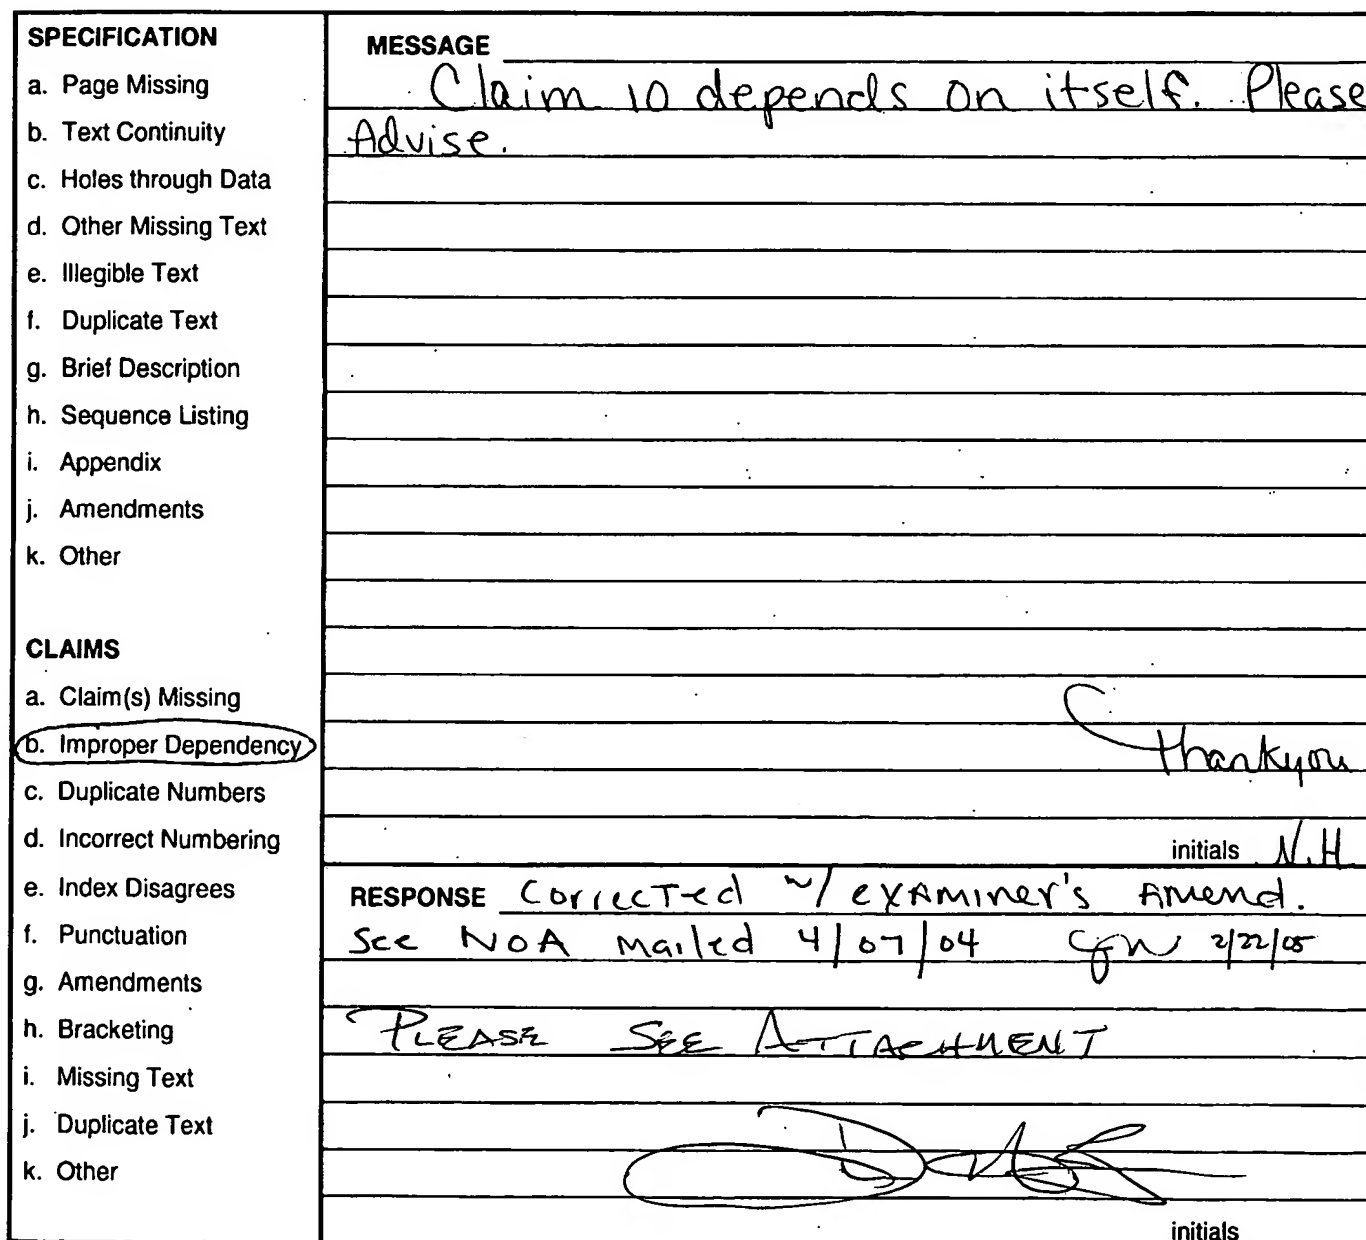 SPECIFICATION
a. Page Missing
b. Text Continuity
c. Holes through Data
d. Other Missing Text
e. Illegible Text
f. Duplicate Text
g. Brief Description
h. Sequence Listing
i. Appendix
j. Amendments
k. Other
CLAIMS
a. Claim(s) Missing
b. Improper Dependency
c. Duplicate Numbers
d. Incorrect Numbering
e. Index Disagrees
f. Punctuation
g. Amendments
h. Bracketing
i. Missing Text
j. Duplicate Text
k. Other
MESSAGE
Claim 10 depends on itself. Please
Advise.
Thankyou
initials N.H
RESPONSE Corrected w/ examiner's Amend.
See NOA Mailed 4/07/04 2/22/05
PLEASE SEE ATTACHMENT
initials